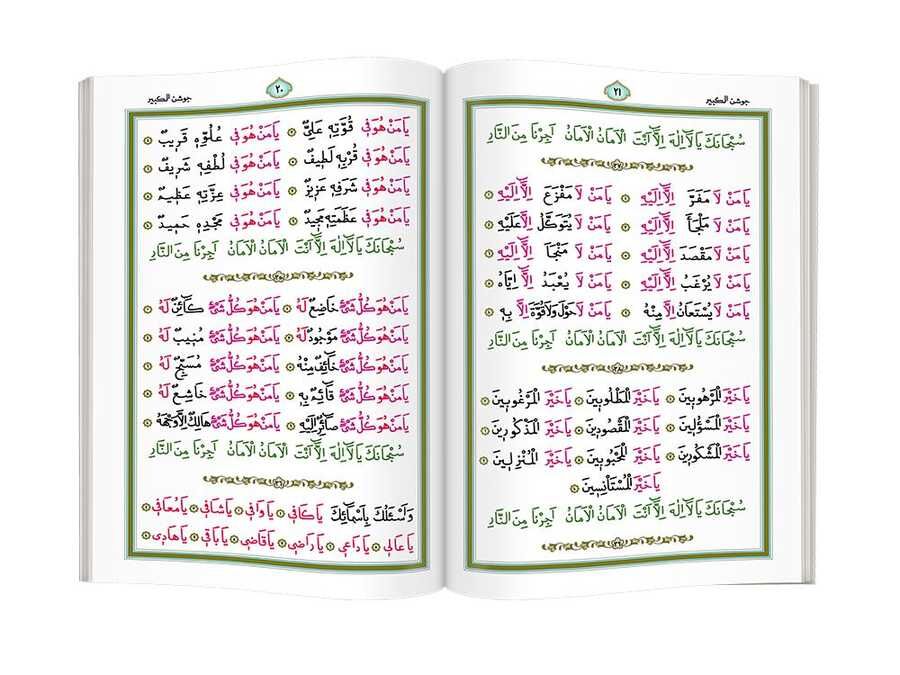 ٢٠
جوشن الكبير
يَا مَنْ هُوَ فٖى قُوَّتِهٖ عَلِىٌّ يَا مَنْ هُوَ فٖى عُلُوِّهٖ قَرٖيبٌ
يَا مَنْ هُوَ فٖى قُرْبِهٖ لَطٖيفٌ يَا مَنْ هُوَ فٖى لُطْفِهٖ شَرٖيفٌ
يَا مَنْ هُوَ فٖى شَرَفِهٖ عَزٖيزٌ يَا مَنْ هُوَ فٖى عِزَّتِهٖ عَظٖيمٌ
يَا مَنْ هُوَ فٖى عَظَمَتِهٖ مَجٖيدٌ يَا مَنْ هُوَ فٖى مَجْدِهٖ حَمٖيدٌ
سُبْحَانَكَ يَا لَٓا اِلٰهَ اِلَّٓا اَنْتَ الْاَمَانُ الْاَمَانُ اَجِرْنَا مِنَ النَّارِ
يَا مَنْ هُوَ كُلُّ شَىْءٍ خَاضِعٌ لَهُ يَا مَنْ هُوَ كُلُّ شَىْءٍ كَٓائِنٌ لَهُ
يَا مَنْ هُوَ كُلُّ شَىْءٍ مَوْجُودٌ لَهُ يَا مَنْ هُوَ كُلُّ شَىْءٍ مُنٖيبٌ لَهُ
يَا مَنْ هُوَ كُلُّ شَىْءٍ خَٓائِفٌ مِنْهُ يَا مَنْ هُوَ كُلُّ شَىْءٍ مُسَبِّحٌ لَهُ
يَا مَنْ هُوَ كُلُّ شَىْءٍ قَٓائِمٌ بِهٖ يَا مَنْ هُوَ كُلُّ شَىْءٍ خَاشِعٌ لَهُ
يَا مَنْ هُوَ كُلُّ شَىْءٍ صَٓائِرٌ اِلَيْهِ يَا مَنْ هُوَ كُلُّ شَىْءٍ هَالِكٌ اِلَّا وَجْهَهُ
سُبْحَانَكَ يَا لَٓا اِلٰهَ اِلَّٓا اَنْتَ الْاَمَانُ الْاَمَانُ اَجِرْنَا مِنَ النَّارِ
وَاَسْئَلُكَ بِاَسْمَٓائِكَ يَا كَافٖى يَا وَافٖى يَا شَافٖى يَا مُعَافٖى
يَا عَالٖى يَا دَاعٖى يَا رَاضٖى يَا قَاضٖى يَا بَاقٖى يَا هَادٖى
٢١
جوشن الكبير
سُبْحَانَكَ يَا لَٓا اِلٰهَ اِلَّٓا اَنْتَ الْاَمَانُ الْاَمَانُ اَجِرْنَا مِنَ النَّارِ
يَا مَنْ لَا مَفَرَّ اِلَّٓا اِلَيْهِ يَا مَنْ لَا مَفْزَعَ اِلَّٓا اِلَيْهِ
يَا مَنْ لَا مَلْجَأَ اِلَّٓا اِلَيْهِ يَا مَنْ لَا يُتَوَكَّلُ اِلَّا عَلَيْهِ
يَا مَنْ لَا مَقْصَدَ اِلَّٓا اِلَيْهِ يَا مَنْ لَا مَنْجَٓا اِلَّٓا اِلَيْهِ
يَا مَنْ لَا يُرْغَبُ اِلَّٓا اِلَيْهِ يَا مَنْ لَا يُعْبَدُ اِلَّٓا اِيَّاهُ
يَا مَنْ لَا يُسْتَعَانُ اِلَّا مِنْهُ يَا مَنْ لَا حَوْلَ وَلَا قُوَّةَ اِلَّا بِهٖ
سُبْحَانَكَ يَا لَٓا اِلٰهَ اِلَّٓا اَنْتَ الْاَمَانُ الْاَمَانُ اَجِرْنَا مِنَ النَّارِ
يَا خَيْرَ الْمَرْهُوبٖينَ يَا خَيْرَ الْمَطْلُوبٖينَ يَا خَيْرَ الْمَرْغُوبٖينَ
يَا خَيْرَ الْمَسْؤُلٖينَ يَا خَيْرَ الْمَقْصُودٖينَ يَا خَيْرَ الْمَذْكُورٖينَ
يَا خَيْرَ الْمَشْكُورٖينَ يَا خَيْرَ الْمَحْبُوبٖينَ يَا خَيْرَ الْمُنْزِلٖينَ
يَا خَيْرَ الْمُسْتَأْنِسٖينَ
سُبْحَانَكَ يَا لَٓا اِلٰهَ اِلَّٓا اَنْتَ الْاَمَانُ الْاَمَانُ اَجِرْنَا مِنَ النَّارِ